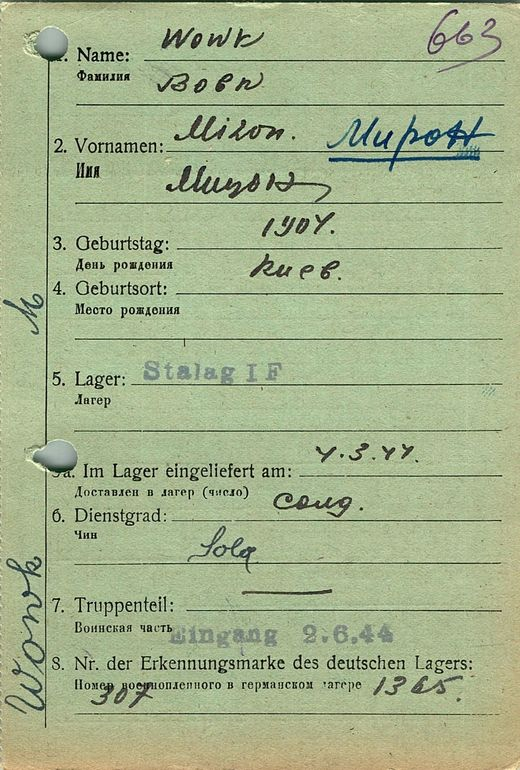 663
1. Name: Wowk
Фамилия
Вовк
2. Vornamen: Miron. Мирон
Имя
Мирон
1904.
3. Geburtstag:
День рождения
Киев.
4. Geburtsort:
Место рождения
M
5. Lager: Stalag I F
Лагерь
5a. Im Lager eingeliefert am: 4.3.44.
Доставлен в лагерь (число)
6. Dienstgrad: солд.
Чин
Sold
7. Truppenteil: —
Воинская часть
Eingang 2.6.44
8. Nr. der Erkennungsmarke des deutschen Lagers:
Номер военнопленного в германском лагере 1365.
307
Wowk